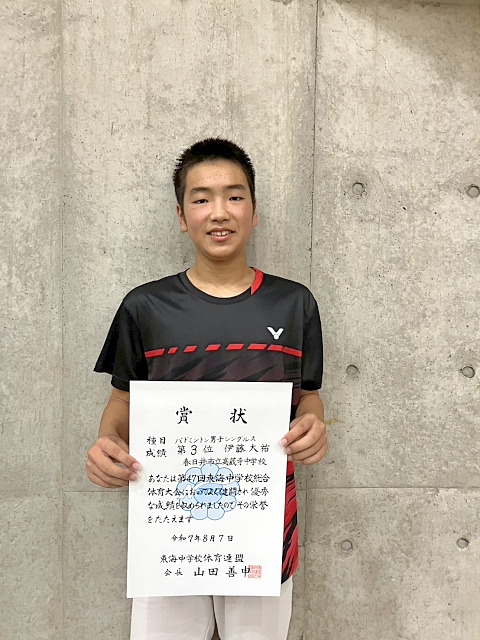 賞状
種目 バドミントン男子シングルス
成績 第3位 伊藤大祐
春日井市立高蔵寺中学校
あなたは第47回東海中学校総合
体育大会においてよく健闘され優秀
な成績を収められましたのでその栄誉
をたたえます
令和7年8月7日
東海中学校体育連盟
会長 山田善申